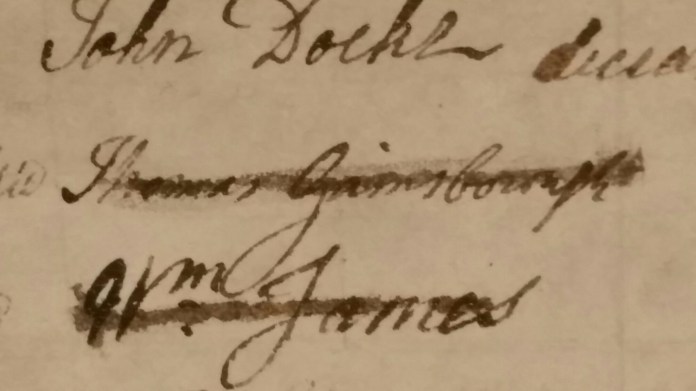 John Docks decea
Thomas Gainsborough
Wm. James